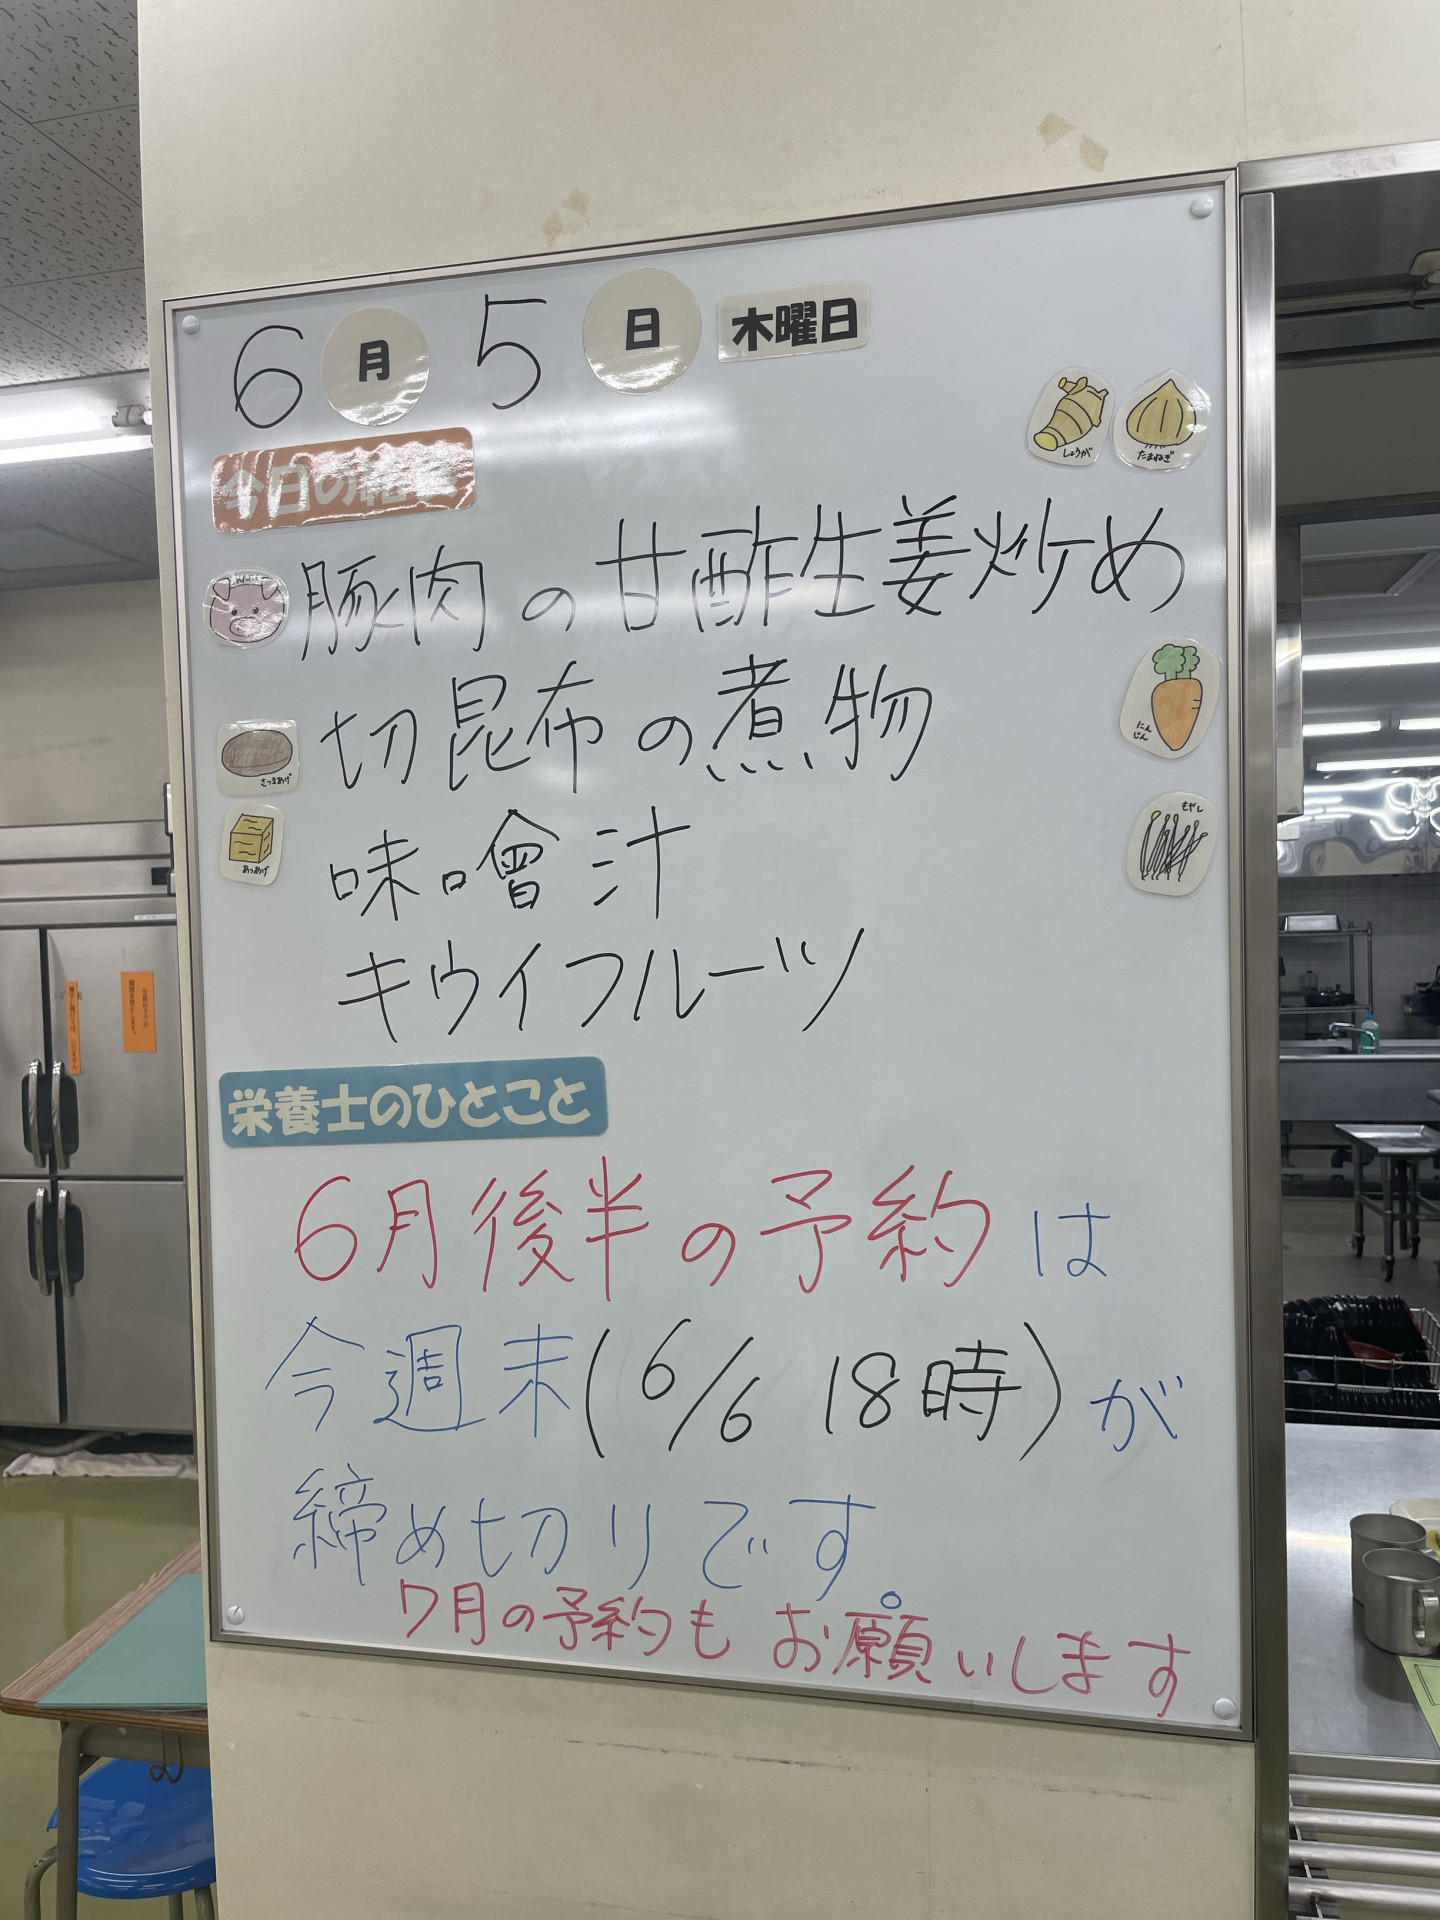 6月5日 木曜日
しょうが
たまねぎ
今日の給食
豚肉の甘酢生姜炒め
切昆布の煮物
にんじん
さつまあげ
味噌汁
もやし
あつあげ
キウイフルーツ
栄養士のひとこと
6月後半の予約は
今週末(6/6 18時)が
締め切りです。
7月の予約もお願いします